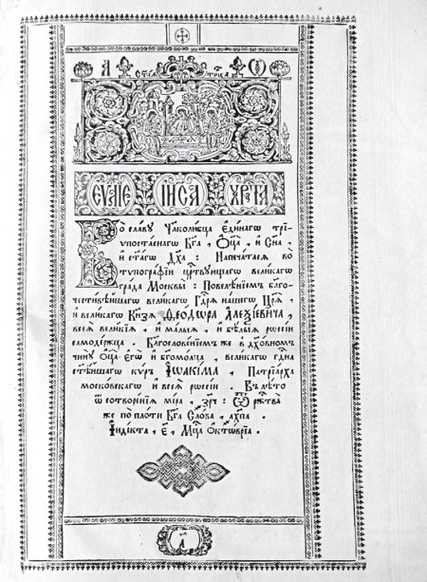 А Ѿ
СТ҃АѦ ТРⷪ҇ЦА
ЄѴⷢ҇АЛІЕ ІИ҃СА ХРⷭ҇ТА
Во славу Человѣколюбца єдинагѡ трї
ѵпостаснагѡ Бг҃а, Ѻц҃а, и Сн҃а,
и ст҃агѡ Дх҃а : Напечатасѧ во
тѵпографїи црⷭ҇твующагѡ великагѡ
града Москвы : Повелѣнїемъ бл҃го
честивѣйшагѡ великагѡ Гдⷭ҇рѧ нашегѡ Цр҃ѧ,
и великагѡ Кнѧзѧ Ѳеодѡра Алеѯїевича,
всеѧ великїѧ, и малыѧ, и бѣлыѧ рѡссїи
самодержца. Благословенїемъ же в дх҃овномъ
чину Ѻц҃а єгѡ и богомолца, великагѡ гдⷭ҇на
ст҃ѣйшагѡ кѵръ Іѡакїма, Патрїарха
московскагѡ и всеѧ рѡссїи. Въ лѣто
ѿ сотворенїѧ мїра, зр҃ч: Ѿ рж҃тва
же по плоти Бг҃а Слова, ахп҃а.
Їндїкта, є҃, Мцⷭ҇а Ѻктѡврїа.
А